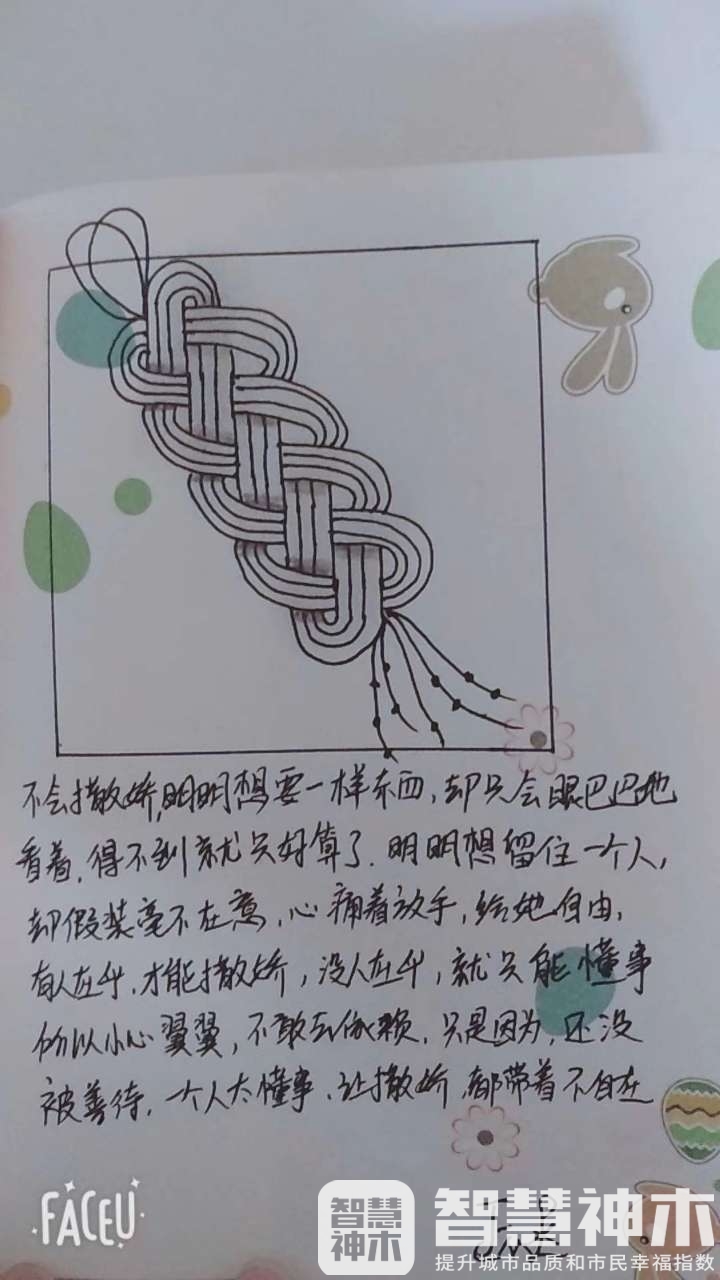 不会撒娇,明明想要一样东西,却只会眼巴巴地
看着,得不到就只好算了.明明想留住一个人,
却假装毫不在意,心痛着放手,给她自由,
有人在乎,才能撒娇,没人在乎,就只能懂事
所以小心翼翼,不敢去依赖,只是因为,还没
被善待,一个人太懂事,让撒娇,都带着不自在
FACEU
智慧神木
智慧神木
提升城市品质和市民幸福指数